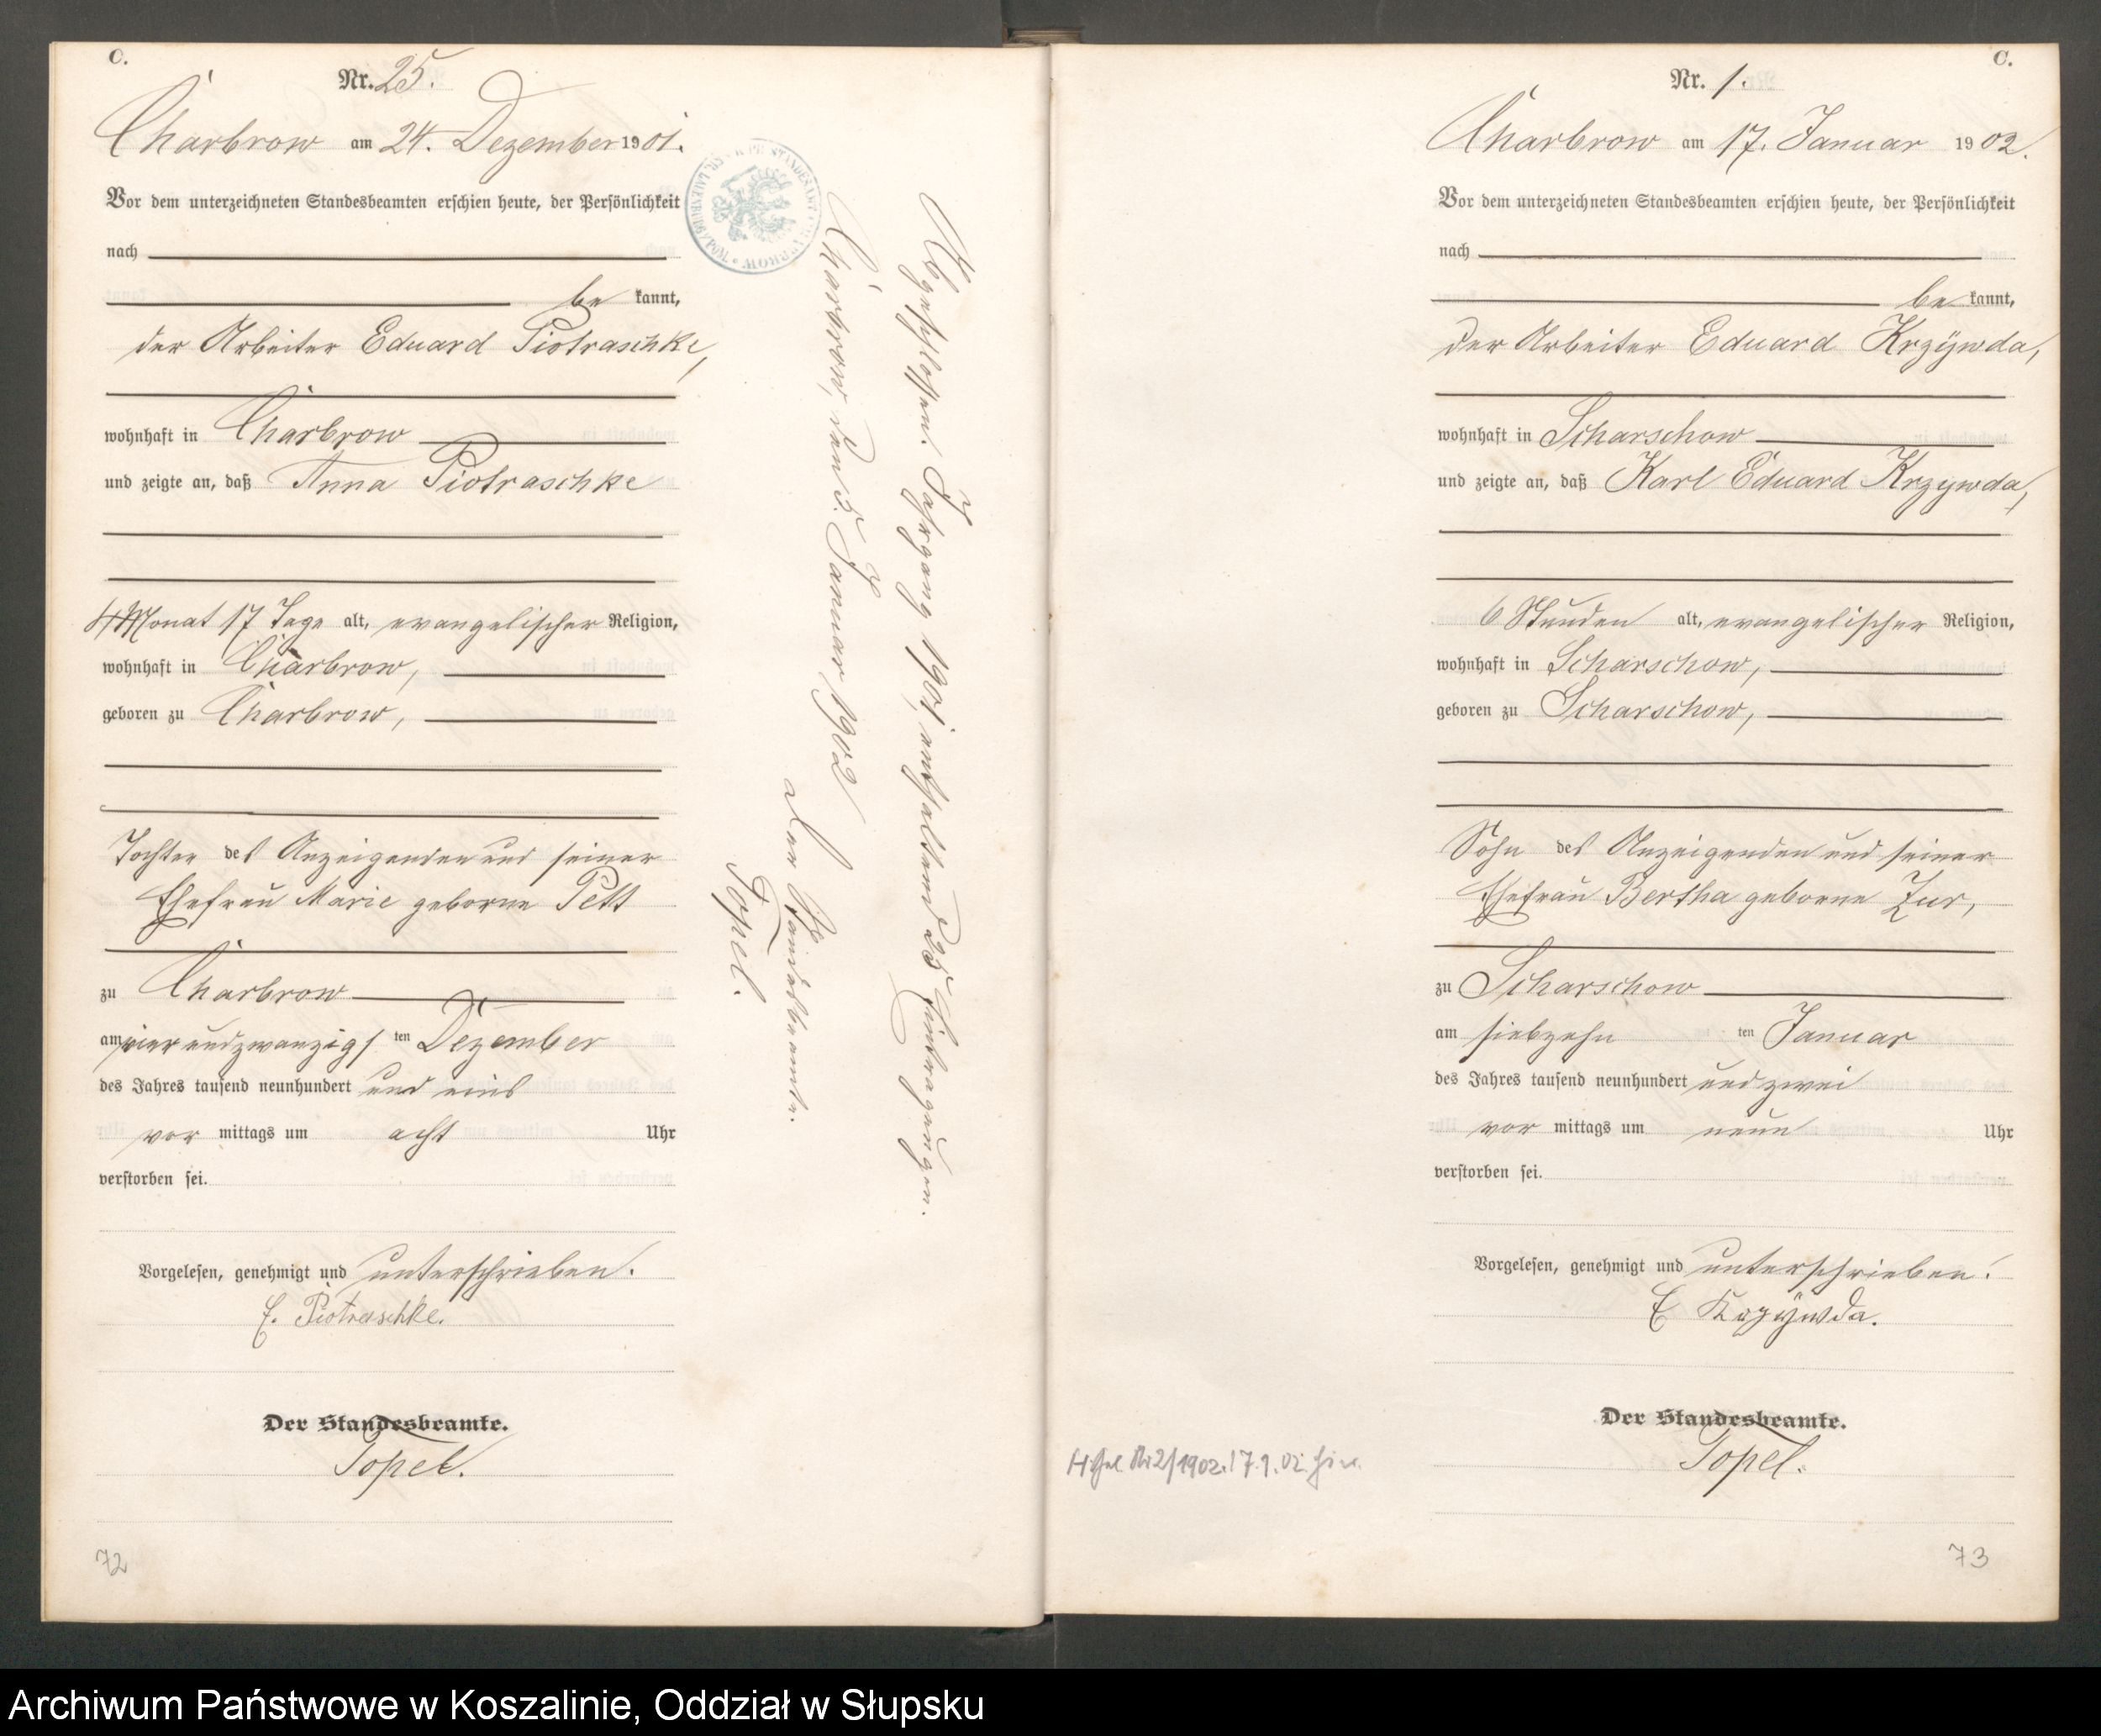 C.
Nr. 25.
Charbrow am 24. Dezember 1901.
Vor dem unterzeichneten Standesbeamten erschien heute, der Persönlichkeit
nach
be kannt,
der Arbeiter Eduard Piotraschke,
wohnhaft in Charbrow
und zeigte an, daß Anna Piotraschke
4 Monat 17 Tage alt, evangelischer Religion,
wohnhaft in Charbrow,
geboren zu Charbrow,
Tochter des Anzeigenden und seiner
Ehefrau Marie geborne Pett
zu Charbrow
am vier und zwanzigsten Dezember
des Jahres tausend neunhundert und eins
vor mittags um acht Uhr
verstorben sei.
Vorgelesen, genehmigt und unterschrieben.
E. Piotraschke.
Der Standesbeamte.
Topel.
72
Abgeschlossen. Jahrgang 1901, enthaltend 25 Eintragungen.
Charbrow, den 5. Januar 1902
Der Standesbeamte.
Topel.
C.
Nr. 1.
Charbrow am 17. Januar 1902.
Vor dem unterzeichneten Standesbeamten erschien heute, der Persönlichkeit
nach
be kannt,
der Arbeiter Eduard Krzÿwda,
wohnhaft in Scharschow
und zeigte an, daß Karl Eduard Krzywda,
6 Stunden alt, evangelischer Religion,
wohnhaft in Scharschow,
geboren zu Scharschow,
Sohn des Anzeigenden und seiner
Ehefrau Bertha geborne Zur,
zu Scharschow
am siebzehn ten Januar
des Jahres tausend neunhundert und zwei
vor mittags um neun Uhr
verstorben sei.
Vorgelesen, genehmigt und unterschrieben.
E Krzÿwda.
Der Standesbeamte.
Topel.
2/1902. 17.1.02.
73
Archiwum Państwowe w Koszalinie, Oddział w Słupsku